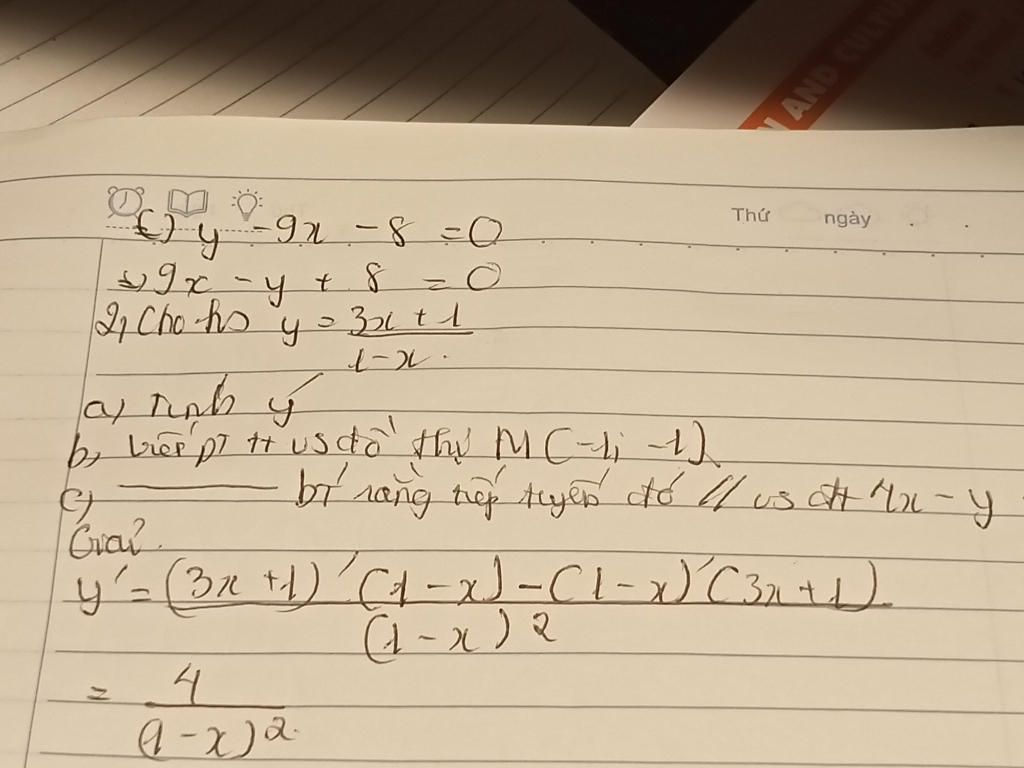 N AND CULTU
Thứ ngày
c) y - 9x - 8 = 0
=> 9x - y + 8 = 0
2, Cho hs y = \frac{3x + 1}{1 - x}.
a, Tính y'
b, Viết pt tt vs đồ thị M (-1; -1)
c) ______ bt rằng tiếp tuyến đó // vs đt 4x - y
Giải.
y' = \frac{(3x + 1)' (1 - x) - (1 - x)' (3x + 1)}{(1 - x)^2}
= \frac{4}{(1 - x)^2}.